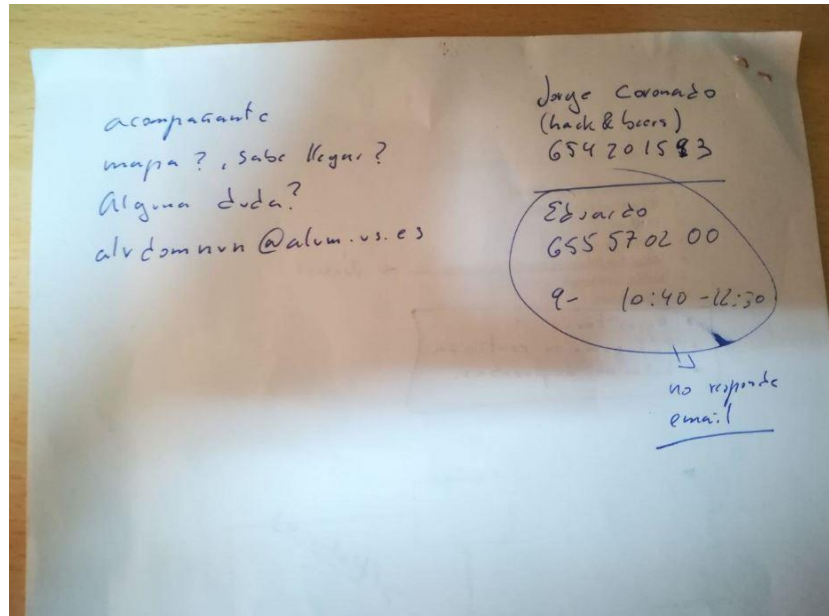 acompañante
mapa?, sabe llegar?
Alguna duda?
alvdomnun@alum.us.es
Jorge Coronado
(hack & beers)
654 201593
Eduardo
655 57 02 00
9- 10:40 - 12:30
no responde
email